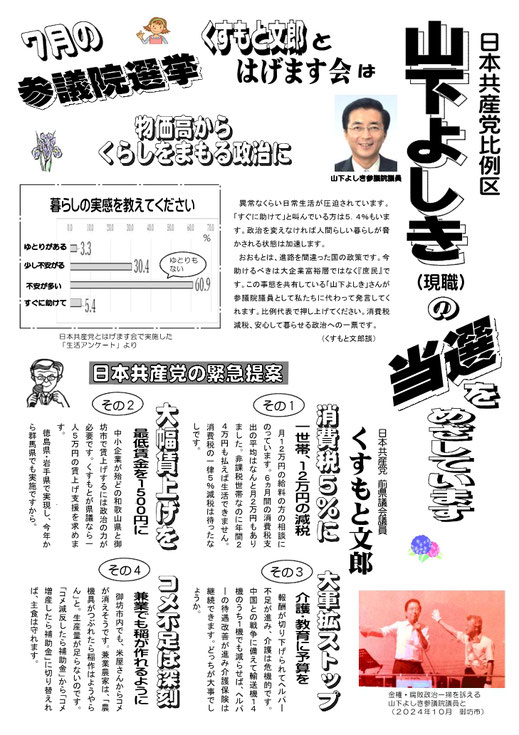 7月の
参議院選挙
くすもと文郎と
はげます会は
日本共産党比例区
山下よしき
(現職)の
当選を
めざしています
山下よしき参議院議員
物価高から
くらしをまもる政治に
暮らしの実感を教えてください
0.0 10.0 20.0 30.0 40.0 50.0 60.0 70.0
%
ゆとりがある 3.3
少し不安がる 30.4
不安が多い 60.9
すぐに助けて 5.4
ゆとりも
ない
日本共産党とはげます会で実施した
「生活アンケート」より
異常なくらい日常生活が圧迫されています。
「すぐに助けて」と叫んでいる方は5.4%もいま
す。政治を変えなければ人間らしい暮らしが脅
かされる状態は加速します。
おおもとは、進路を間違った国の政策です。今
助けるべきは大企業富裕層ではなく『庶民』で
す。この事態を共有している「山下よしき」さんが
参議院議員として私たちに代わって発言してく
れます。比例代表で押し上げてください。消費税
減税、安心して暮らせる政治への一票です。
(くすもと文郎談)
日本共産党の緊急提案
日本共産党 前県議会議員
くすもと文郎
その1
消費税5%に
一世帯、12万円の減税
月12万円の給料の方の相談に
のっています。6カ月間の消費税支
出の平均はなんと月2万円もあり
ました。非課税世帯なのに年間2
4万円も払えば生活できません。
消費税の一律5%減税は待ったな
しです。
その2
大幅賃上げを
最低賃金を1500円に
中小企業が殆どの和歌山県と御
坊市で賃上げするには政治の力が
必要です。くすもとが県議なら一
人5万円の賃上げ支援を求めま
す。
徳島県・岩手県で実現し、今年か
ら群馬県でも実施ですから。
その3
大軍拡ストップ
介護、教育に予算を
報酬が切り下げられてヘルパー
不足が進み、介護は危機的です。
中国との戦争に備えて輸送機14
機のうち1機でも減らせば、ヘルパ
ーの待遇改善が進み介護保険は
継続できます。どっちが大事でし
ょうか。
その4
コメ不足は深刻
兼業でも稲が作れるように
御坊市内でも、米屋さんからコメ
が消えそうです。兼業農家は、「農
機具がつぶれたら稲作はようやら
ん」と。生産量が足らないのです。
「コメ減反したら補助金」から「コメ
増産したら補助金」に切り替えれ
ば、主食は守れます。
金権・腐敗政治一掃を訴える
山下よしき参議院議員と
(2024年10月 御坊市)